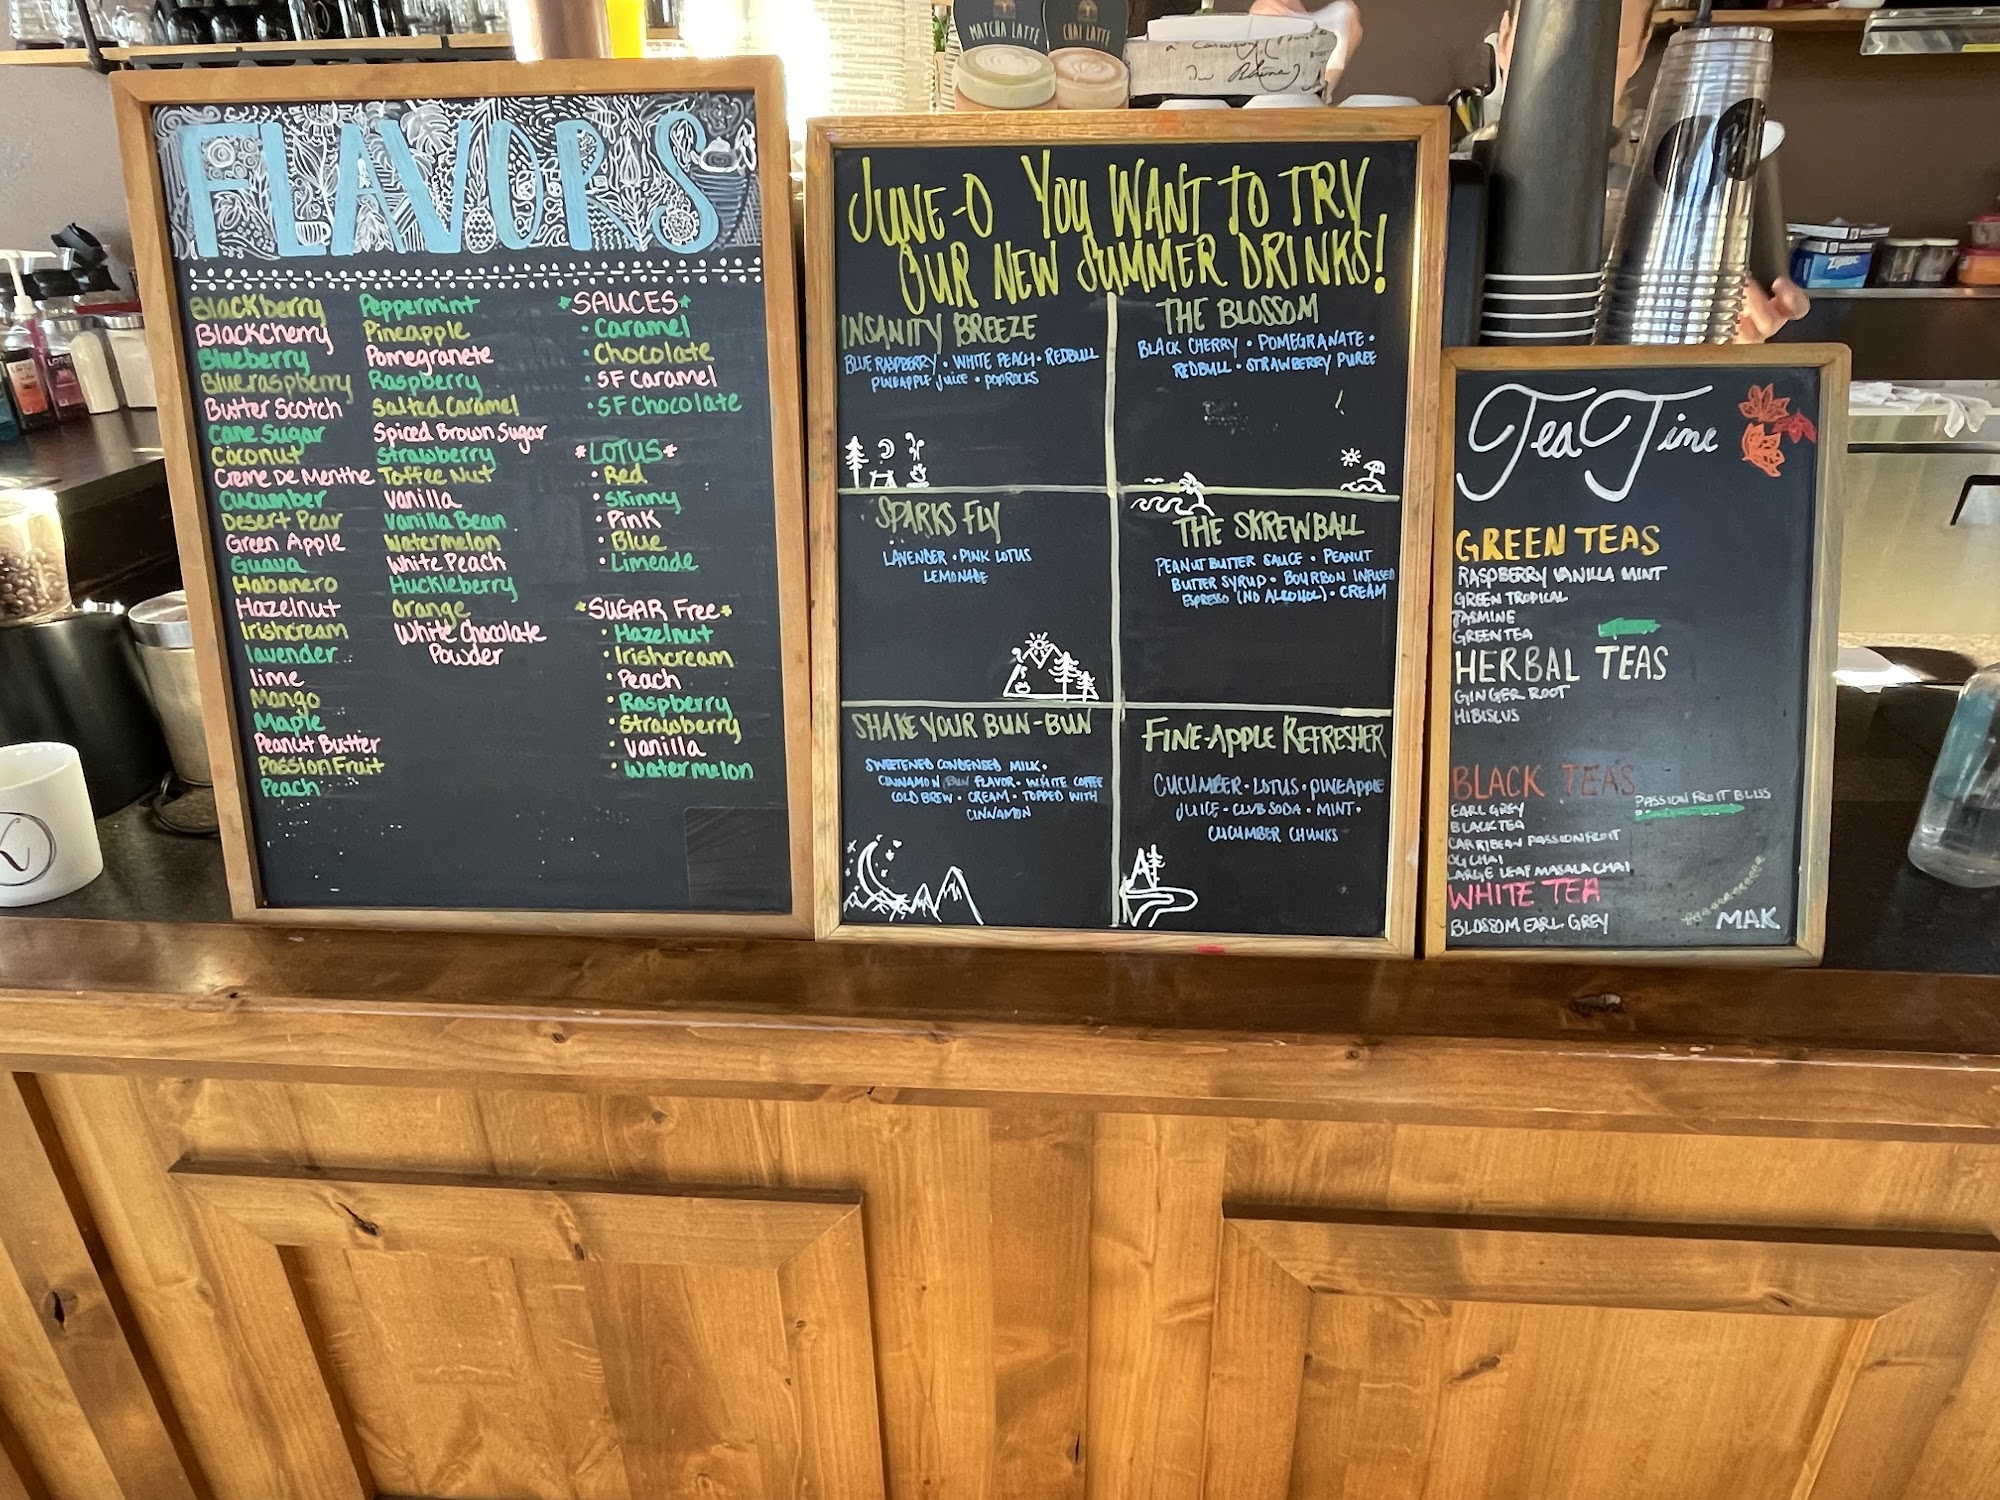 MATCHA LATTE
CHAI LATTE
FLAVORS
Blackberry
BlackCherry
Blueberry
Blueraspberry
Butter Scotch
Cane Sugar
Coconut
Creme De Menthe
Cucumber
Desert Pear
Green Apple
Guava
Habanero
Hazelnut
Irishcream
lavender
lime
Mango
Maple
Peanut Butter
Passion Fruit
Peach
Peppermint
Pineapple
Pomegranete
Raspberry
Salted Caramel
Spiced Brown Sugar
Strawberry
Toffee Nut
Vanilla
Vanilla Bean
Watermelon
White Peach
Huckleberry
Orange
White Chocolate
Powder
*SAUCES*
• Caramel
• Chocolate
• SF Caramel
• SF Chocolate
*LOTUS*
• Red
• Skinny
• Pink
• Blue
• Limeade
*SUGAR Free*
• Hazelnut
• Irishcream
• Peach
• Raspberry
• Strawberry
• Vanilla
• Watermelon
JUNE-O YOU WANT TO TRY
OUR NEW SUMMER DRINKS!
INSANITY BREEZE
BLUE RASPBERRY • WHITE PEACH • REDBULL
PINEAPPLE JUICE • POPROCKS
THE BLOSSOM
BLACK CHERRY • POMEGRANATE •
REDBULL • STRAWBERRY PUREE
SPARKS FLY
LAVENDER • PINK LOTUS
LEMONADE
THE SKREWBALL
PEANUT BUTTER SAUCE • PEANUT
BUTTER SYRUP • BOURBON INFUSED
ESPRESSO (NO ALCOHOL) • CREAM
SHAKE YOUR BUN-BUN
SWEETENED CONDENSED MILK •
CINNAMON BUN FLAVOR • WHITE COFFEE
COLD BREW • CREAM • TOPPED WITH
CINNAMON
FINE-APPLE REFRESHER
CUCUMBER • LOTUS • PINEAPPLE
JUICE • CLUB SODA • MINT •
CUCUMBER CHUNKS
Tea Time
GREEN TEAS
RASPBERRY VANILLA MINT
GREEN TROPICAL
JASMINE
GREEN TEA
HERBAL TEAS
GINGER ROOT
HIBISCUS
BLACK TEAS
EARL GREY
BLACK TEA
CARRIBEAN PASSIONFRUIT
OG CHAI
LARGE LEAF MASALA CHAI
PASSION FRUIT BLISS
WHITE TEA
BLOSSOM EARL GREY
MAK
Ziploc